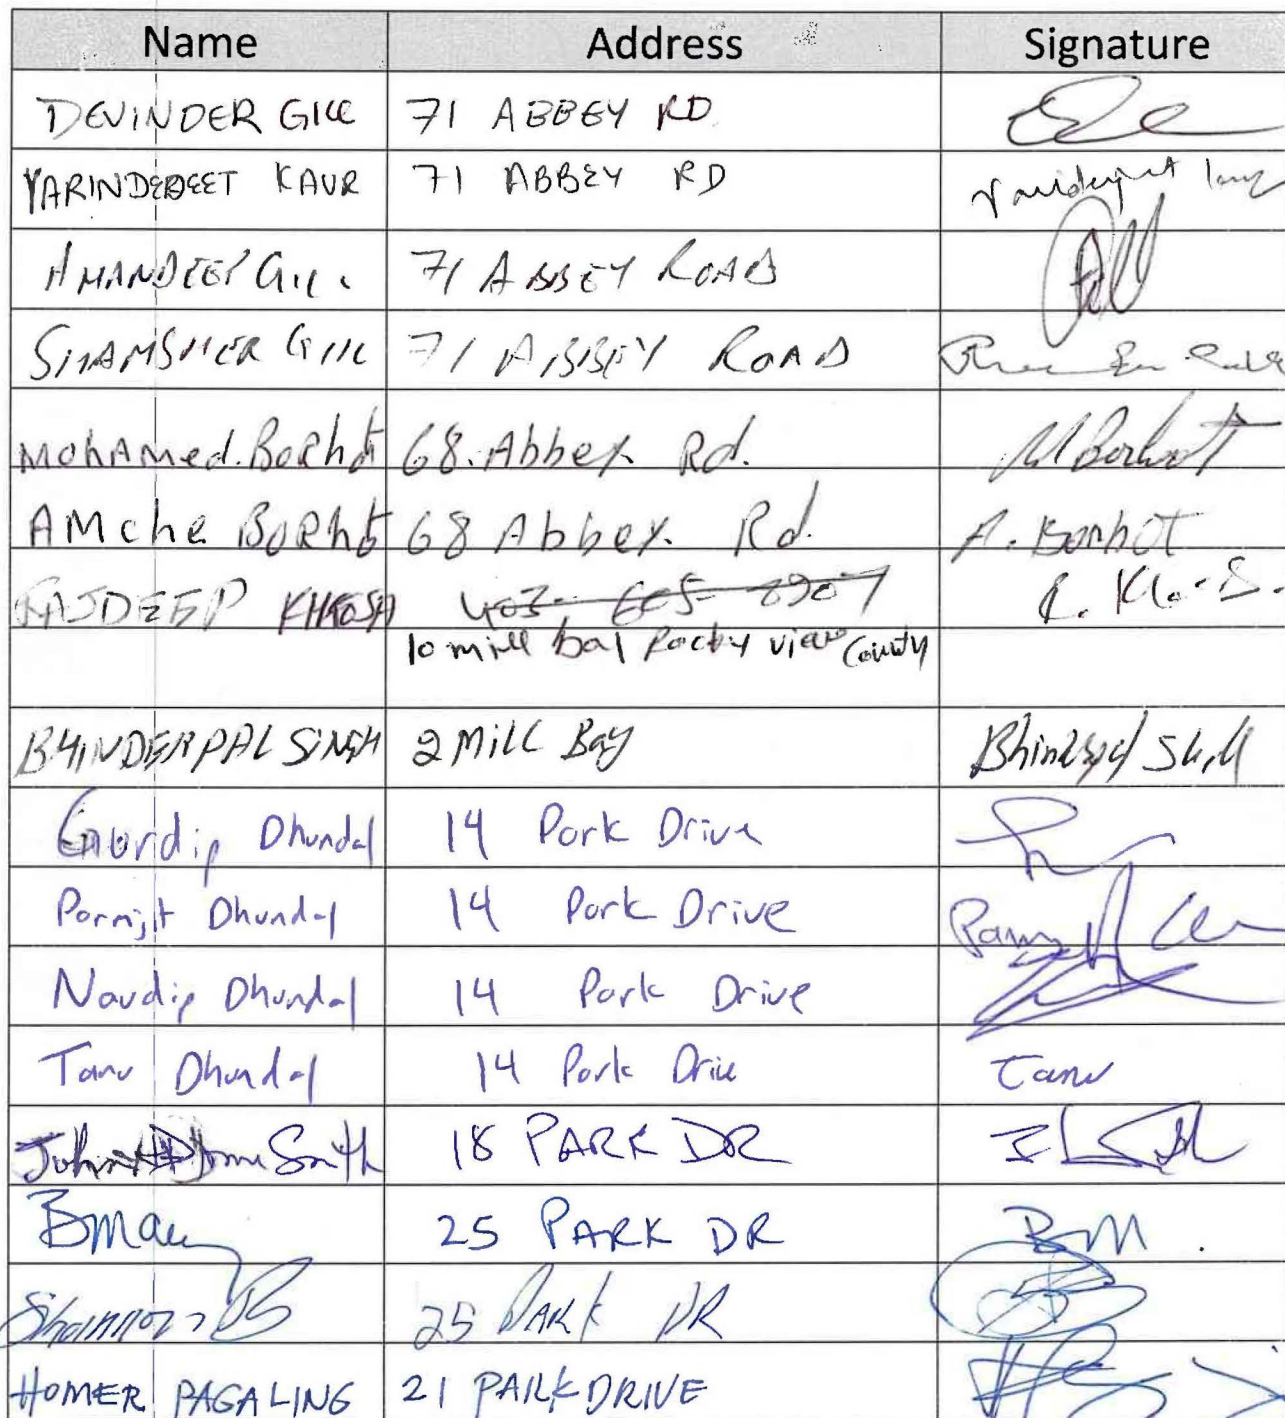 Name Address Signature
DEVINDER GILL 71 ABBEY RD
VARINDERJEET KAUR 71 ABBEY RD
AMANDEEP GILL 71 ABBEY ROAD
SHAMSHER GILL 71 ABBEY ROAD
MohAmed. BoRhot 68. Abbey Rd. M Borhot
AMche BoRhot 68 Abbey. Rd. A. Borhot
RAJDEEP KHOSA 403- 605- 8907
10 mill bay Rocky view County
BHINDERPAL SINGH 2 Mill Bay
Gurdip Dhundal 14 Park Drive
Parmjit Dhundal 14 Park Drive
Navdip Dhundal 14 Park Drive
Tanv Dhundal 14 Park Drive Tanv
John Smith 18 PARK DR
25 PARK DR BM
Shannon B 25 PARK DR
HOMER PAGALING 21 PARK DRIVE